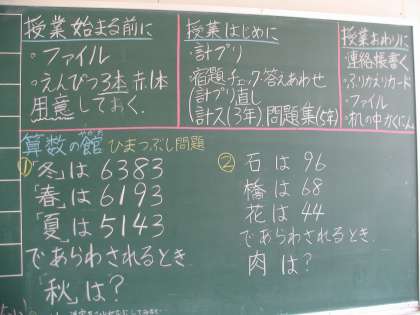 授業始まる前に
・ファイル
・えんぴつ3本 赤1本
用意しておく.
授業はじめに
・計プリ
・宿題チェック・答えあわせ
(計プリ直し
計ス(3年) 問題集(5年)
授業おわりに
・連絡帳書く
・ふりかえりカード
・ファイル
・机の中かくにん
算数の館 ひまつぶし問題
① 「冬」は 6383
「春」は 6193
「夏」は 5143
であらわされるとき
「秋」は?
② 石は 96
橋は 68
花は 44
であらわされるとき
肉は?